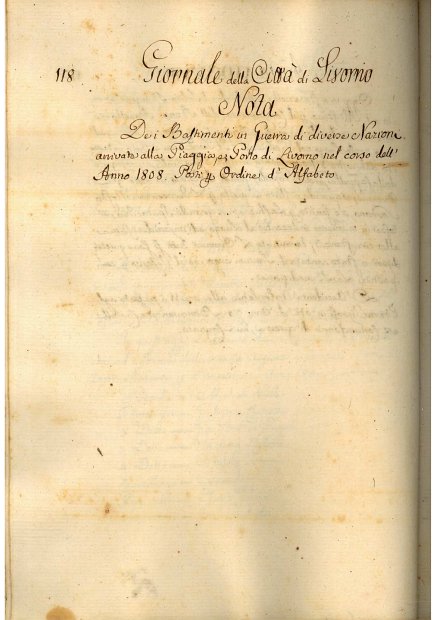 118 Giornale della Città di Livorno
Nota
Dei Bastimenti in Guerra di diverse Nazione
arrivate alla Piaggia e Porto di Livorno nel corso dell'
Anno 1808. Posti p Ordine d'Alfabeto